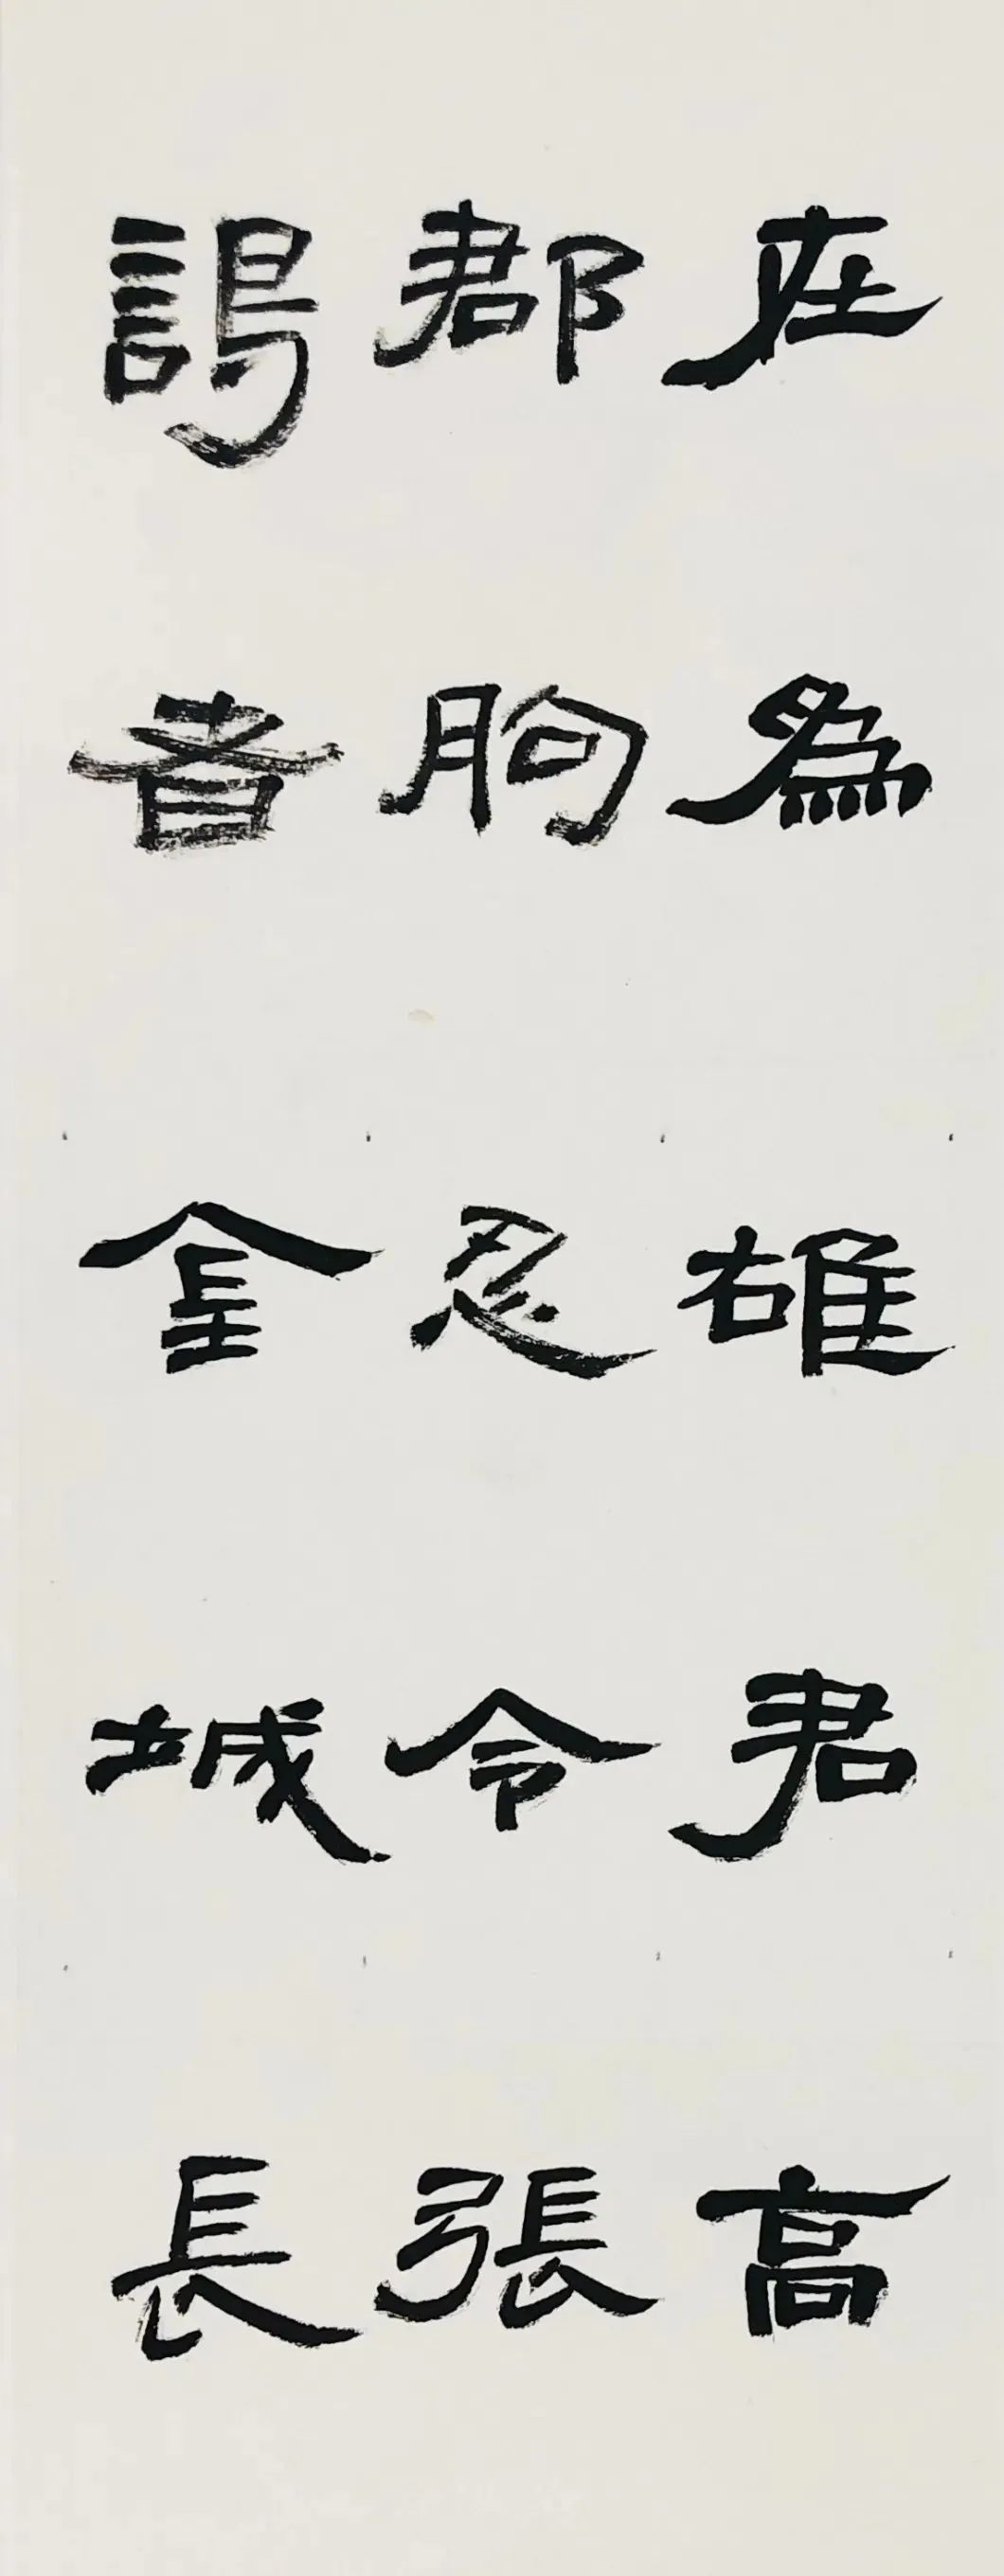 在為雄君高
郡朐忍令張
謁者金城長